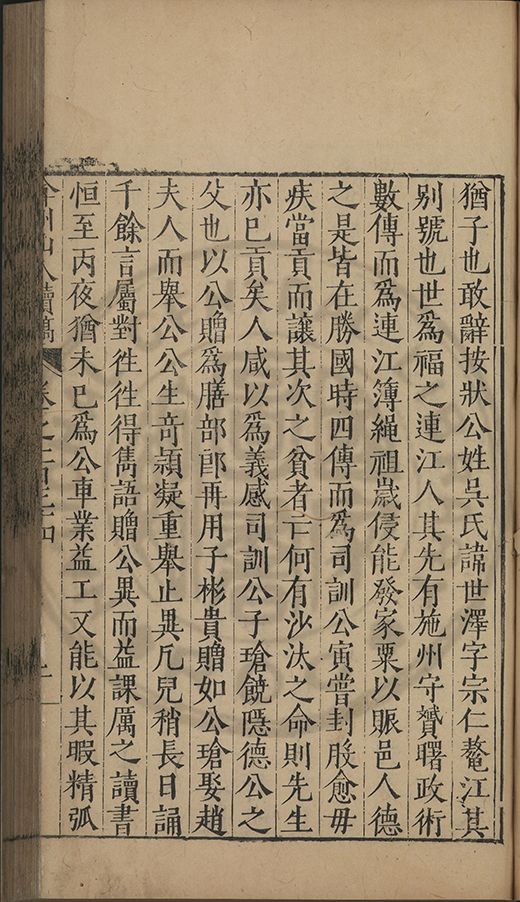 猶子也敢辭按狀公姓吳氏諱世澤字宗仁鰲江其
別號也世爲福之連江人其先有施州守贇曙政術
數傳而爲連江簿繩祖歲侵能發家粟以賑邑人德
之是皆在勝國時四傳而爲司訓公寅嘗刲股愈毋
疾當貢而讓其次之貧者亡何有沙汰之命則先生
亦已貢矣人咸以爲義感司訓公子瑲饒隱德公之
父也以公贈爲膳部郎再用子彬貴贈如公瑲娶趙
夫人而舉公公生竒頴凝重舉止異凢兒稍長日誦
千餘言屬對徃徃得雋語贈公異而益課厲之讀書
恒至丙夜猶未已爲公車業益工又能以其暇精弧
弇州山人續稿 卷之